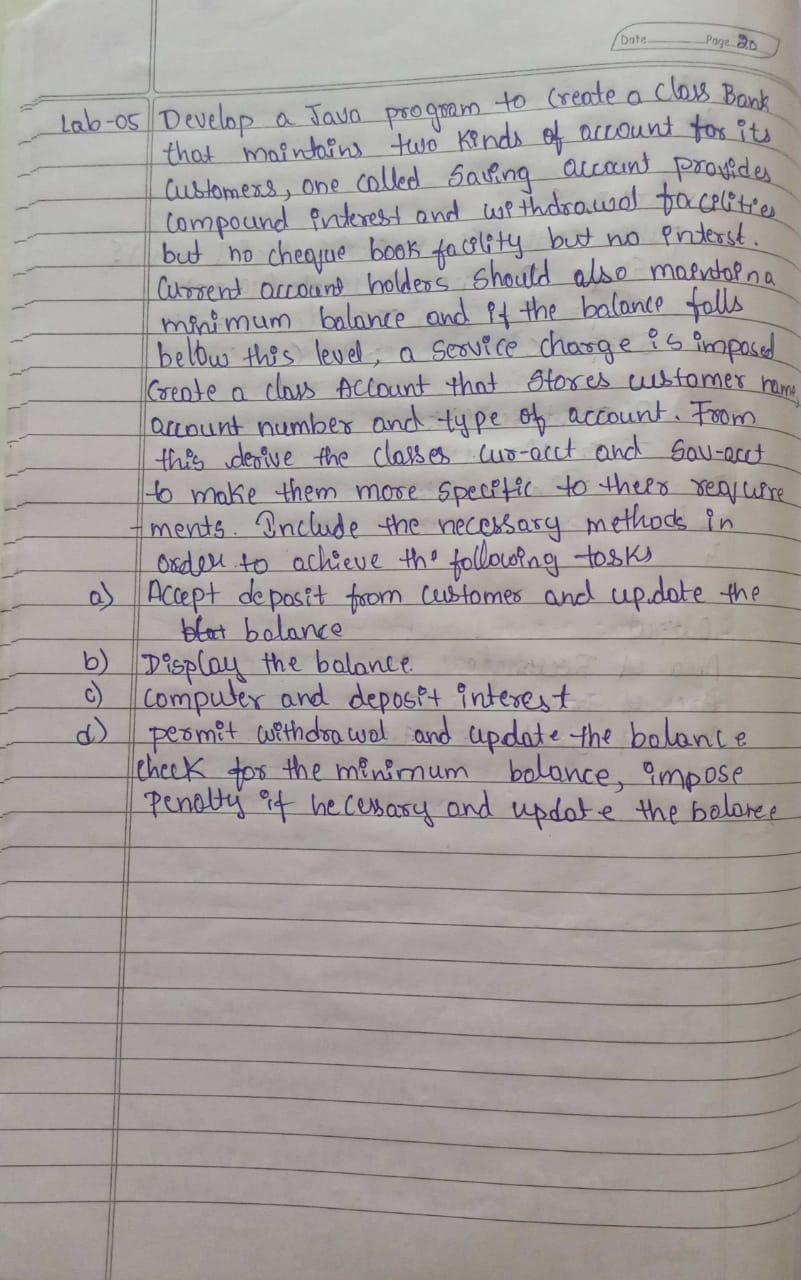 Date Page 20
Lab-05 Develop a Java program to create a class Bank
that maintains two kinds of account for its
customers, one called Saving account provides
compound interest and withdrawal facilities
but no cheque book facility but no interst.
Current account holders should also maintain a
minimum balance and if the balance falls
below this level, a service charge is imposed
Create a class Account that stores customer name,
account number and type of account. From
this derive the classes cur-acct and sav-acct
to make them more specific to their require
ments. Include the necessary methods in
order to achieve the following tasks
a) Accept deposit from customer and update the
balance
b) Display the balance.
c) computer and deposit interest
d) permit withdrawal and update the balance
check for the minimum balance, impose
penalty if necessary and update the balance